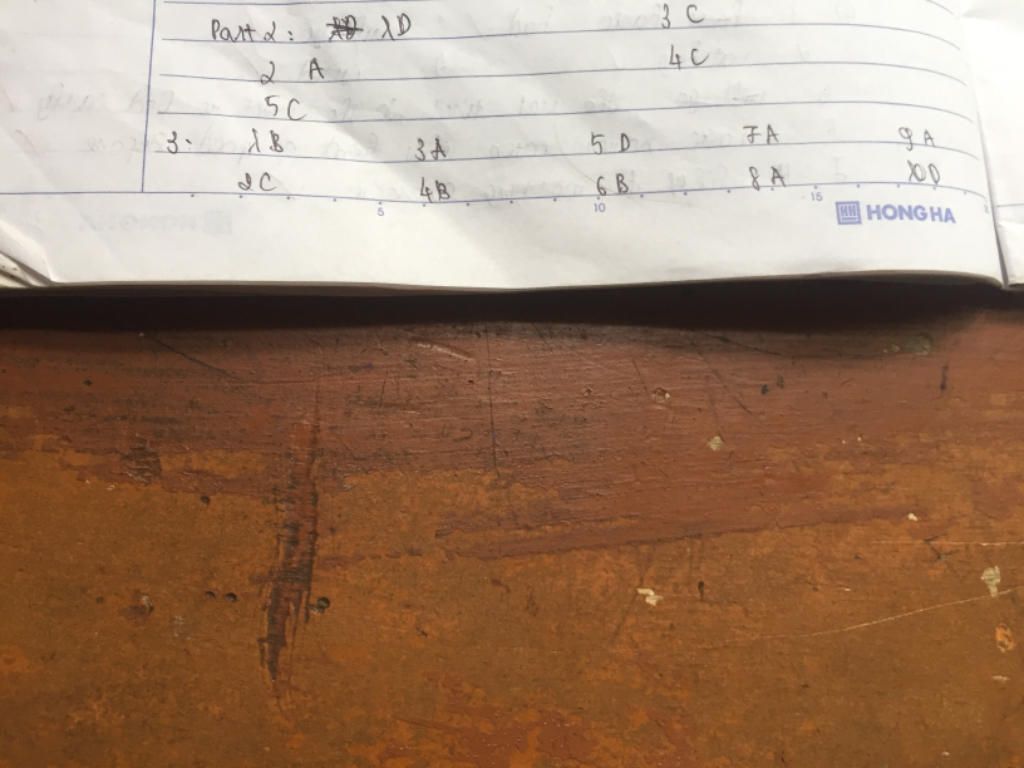 Part 2: 1D 3 C
2 A 4C
5C
3: 1B 3A 5D 7A 9A
2C 4B 6B 8A 10D
5 10 15
HH HONG HA